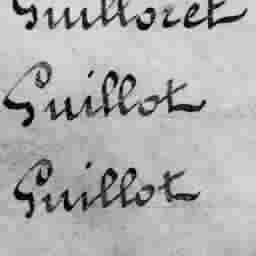 Guilloret
Guillot
Guillot